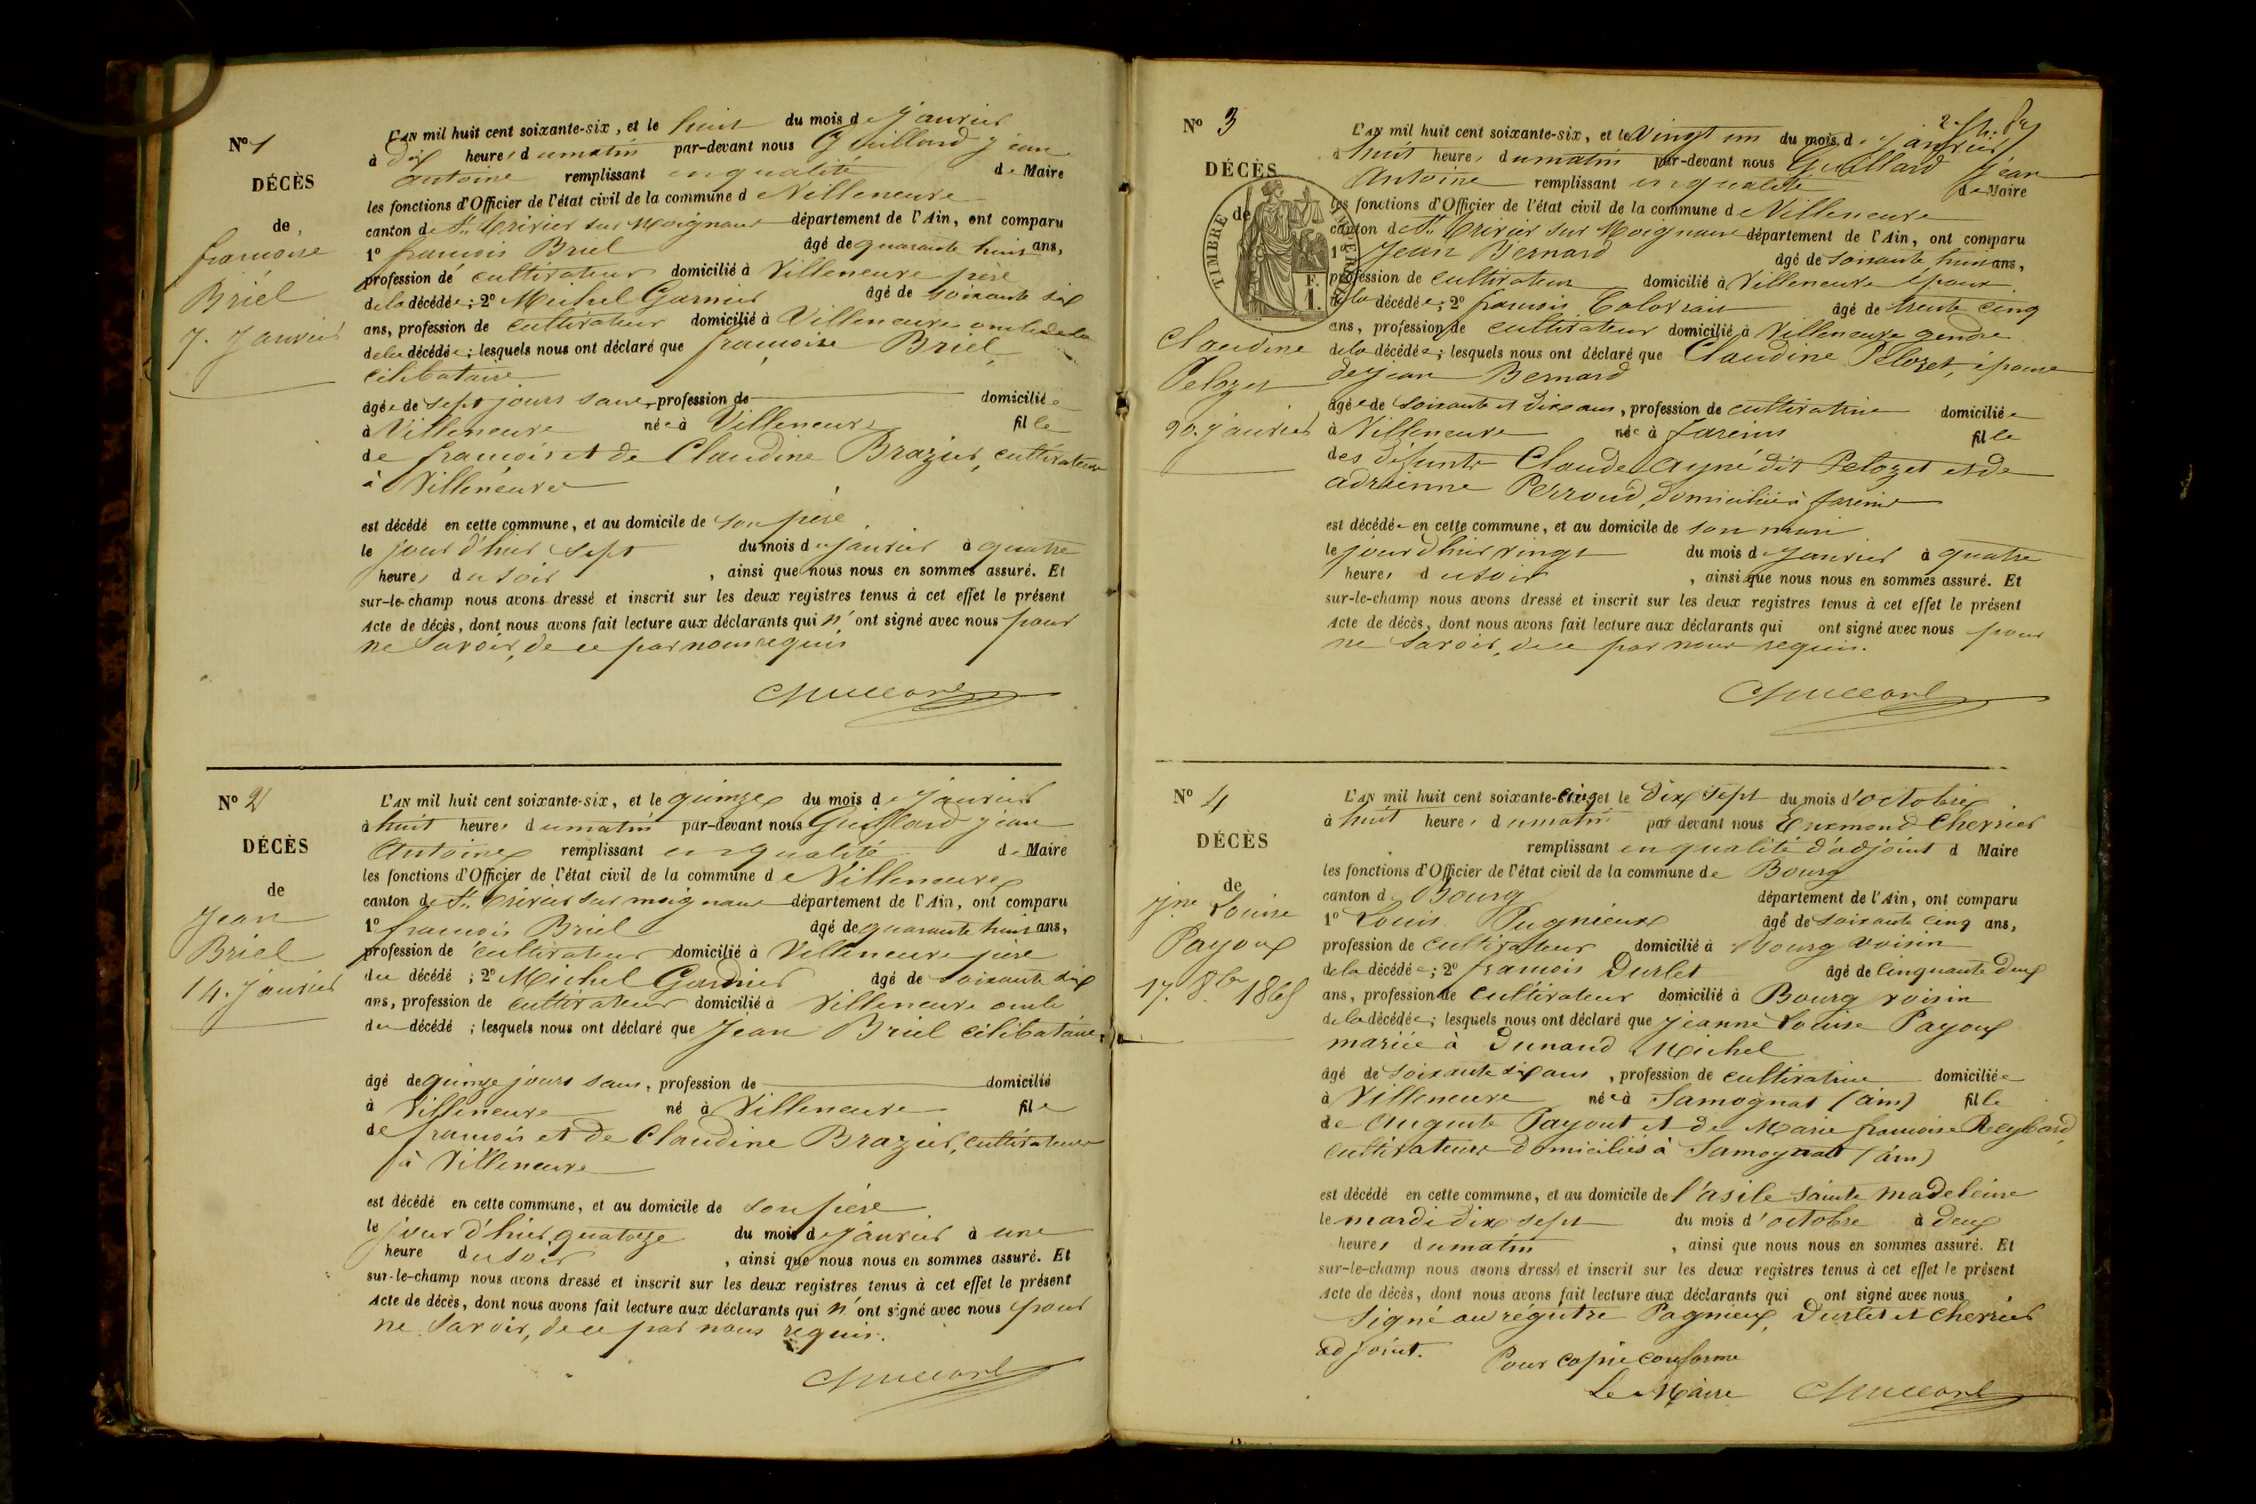 N° 1
DÉCÈS
de
françoise
Briel
7. Janvier
L'AN mil huit cent soixante-six, et le huit du mois de Janvier
à dix heures du matin par-devant nous Guillard Jean
Antoine remplissant en qualité de Maire
les fonctions d'Officier de l'état civil de la commune de Villeneuve
canton de St. Trivier sur Moignans département de l'Ain, ont comparu
1° françois Briel âgé de quarante huit ans,
profession de cultivateur domicilié à Villeneuve père
de la décédée; 2° Michel Garnier âgé de soixante six
ans, profession de cultivateur domicilié à Villeneuve oncle de la
de la décédée; lesquels nous ont déclaré que françoise Briel
célibataire
âgée de sept jours sans, profession de domiciliée
à Villeneuve née à Villeneuve fille
de françois et de Claudine Brazier, cultivateurs
à Villeneuve
est décédé en cette commune, et au domicile de son père
le jour d'hier sept du mois de Janvier à quatre
heures du soir, ainsi que nous nous en sommes assuré. Et
sur-le-champ nous avons dressé et inscrit sur les deux registres tenus à cet effet le présent
Acte de décès, dont nous avons fait lecture aux déclarants qui n'ont signé avec nous pour
ne savoir, de ce par nous requis
Guillard
N° 2
DÉCÈS
de
Jean
Briel
14. Janvier
L'AN mil huit cent soixante-six, et le quinze du mois de Janvier
à huit heures du matin par-devant nous Guillard Jean
Antoine remplissant en qualité de Maire
les fonctions d'Officier de l'état civil de la commune de Villeneuve
canton de St. Trivier sur moignans département de l'Ain, ont comparu
1° françois Briel âgé de quarante huit ans,
profession de cultivateur domicilié à Villeneuve père
du décédé; 2° Michel Garnier âgé de soixante six
ans, profession de cultivateur domicilié à Villeneuve oncle
du décédé; lesquels nous ont déclaré que Jean Briel célibataire
âgé de quinze jours sans, profession de domicilié
à Villeneuve né à Villeneuve fil
de françois et de Claudine Brazier, cultivateurs
à Villeneuve
est décédé en cette commune, et au domicile de son père
le jour d'hier quatorze du mois de janvier à une
heure du soir, ainsi que nous nous en sommes assuré. Et
sur-le-champ nous avons dressé et inscrit sur les deux registres tenus à cet effet le présent
Acte de décès, dont nous avons fait lecture aux déclarants qui n'ont signé avec nous pour
ne savoir, de ce par nous requis.
Guillard
N° 3
DÉCÈS
de
TIMBRE IMPÉRIAL
F.
1.
Claudine
Pelozet
20. janvier
L'AN mil huit cent soixante-six, et le Vingt un du mois de Janvier
à huit heures du matin par-devant nous Guillard Jean
Antoine remplissant en qualité de Maire
les fonctions d'Officier de l'état civil de la commune de Villeneuve
canton de St. Trivier sur Moignans département de l'Ain, ont comparu
1° Jean Bernard âgé de soixante huit ans,
profession de cultivateur domicilié à Villeneuve époux
de la décédée; 2° françois âgé de trente cinq
ans, profession de cultivateur domicilié à Villeneuve gendre
de la décédée; lesquels nous ont déclaré que Claudine Pelozet, épouse
de Jean Bernard
âgée de soixante et dix ans, profession de cultivatrice domiciliée
à Villeneuve née à fareins fille
des défunts Claude Ayné dit Pelozet et de
adrienne Perroud, domiciliés à fareins
est décédée en cette commune, et au domicile de son mari
le jour d'hier vingt du mois de Janvier à quatre
heures du soir, ainsi que nous nous en sommes assuré. Et
sur-le-champ nous avons dressé et inscrit sur les deux registres tenus à cet effet le présent
Acte de décès, dont nous avons fait lecture aux déclarants qui ont signé avec nous pour
ne savoir, de ce par nous requis.
Guillard
N° 4
DÉCÈS
de
Jne Louise
Payoux
17. 8bre 1865
L'AN mil huit cent soixante-cinq et le Dix sept du mois d'octobre
à huit heures du matin par devant nous Enemond Cherrier
remplissant en qualité d'adjoint d Maire
les fonctions d'Officier de l'état civil de la commune de Bourg
canton d Bourg département de l'Ain, ont comparu
1° Louis Pugnieux âgé de soixante cinq ans,
profession de cultivateur domicilié à Bourg voisin
de la décédée; 2° françois Durlet âgé de cinquante deux
ans, profession de cultivateur domicilié à Bourg voisin
de la décédée; lesquels nous ont déclaré que Jeanne Louise Payoux
mariée à Dunand Michel
âgé de soixante six ans, profession de cultivatrice domiciliée
à Villeneuve née à Samognat (ain) fille
de Auguste Payout et de Marie françoise Reybard
cultivateurs domiciliés à Samognat (ain)
est décédé en cette commune, et au domicile de l'asile Sainte Madeleine
le mardi dix sept du mois d'octobre à deux
heures du matin, ainsi que nous nous en sommes assuré. Et
sur-le-champ nous avons dressé et inscrit sur les deux registres tenus à cet effet le présent
Acte de décès, dont nous avons fait lecture aux déclarants qui ont signé avec nous
Signé au régistre Pagnieux, Durlet et Cherrier
adjoint. Pour copie conforme
Le Maire Guillard